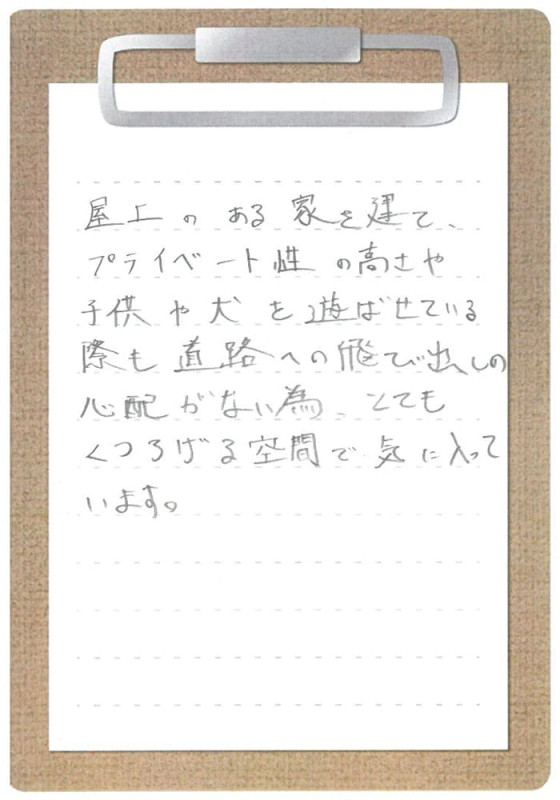 屋上のある家を建て、
プライベート性の高さや
子供や犬を遊ばせている
際も直路への飛び出しの
心配がない為、とても
くつろげる空間で気に入って
います。